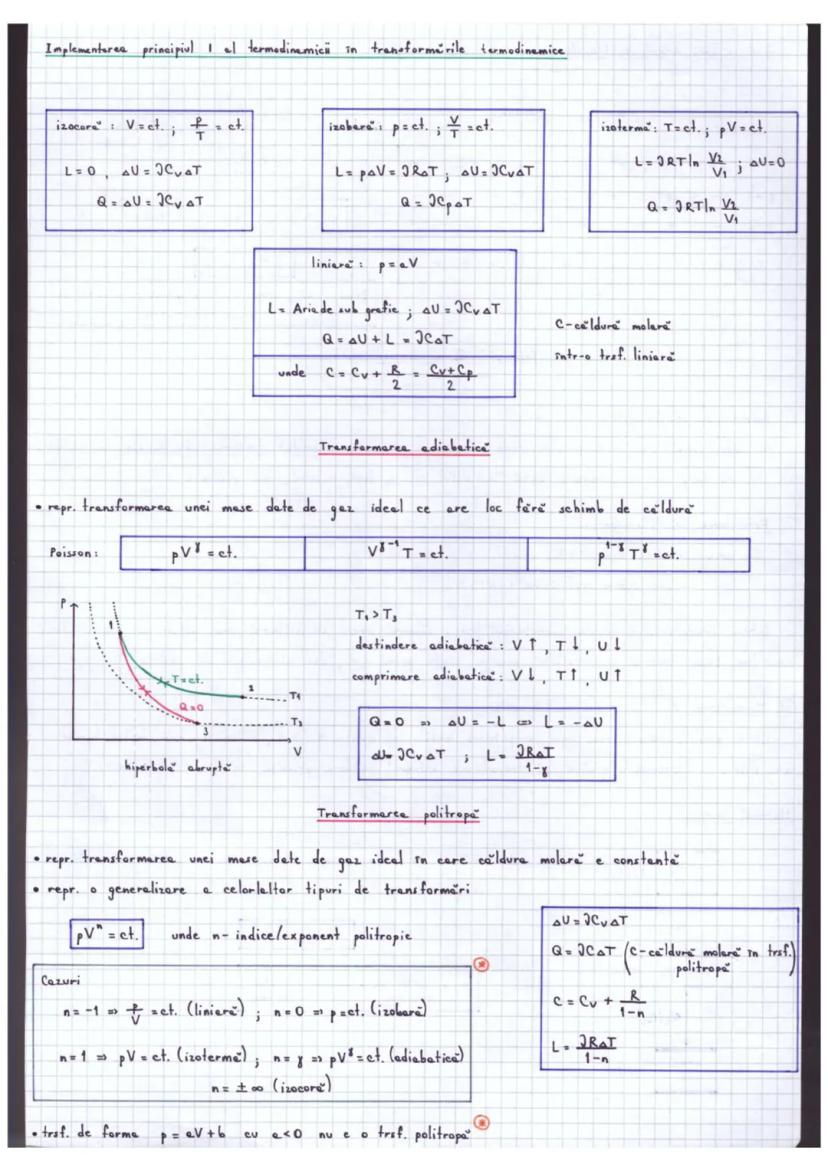 Implementarea principiul 1 al termodinamicii în transformările termodinamice
izocoră : V = ct. ; p/T = ct.
L = 0 , ΔU = νCvΔT
Q = ΔU = νCvΔT
izobară : p = ct. ; V/T = ct.
L = pΔV = νRΔT ; ΔU = νCvΔT
Q = νCpΔT
izotermă : T = ct. ; pV = ct.
L = νRT ln V2/V1 ; ΔU = 0
Q = νRT ln V2/V1
liniară : p = aV
L = Aria de sub grafic ; ΔU = νCvΔT
Q = ΔU + L = νCΔT
unde C = Cv + R/2 = (Cv + Cp)/2
C - căldură molară
într-o trsf. liniară
Transformarea adiabatică
• repr. transformarea unei mase date de gaz ideal ce are loc fără schimb de căldură
Poisson :
pV^γ = ct.
V^(γ-1) T = ct.
p^(1-γ) T^γ = ct.
P
1
T = ct.
2
T1
Q = 0
3
T3
V
hiperbolă abruptă
T1 > T3
destindere adiabatică : V ↑ , T ↓ , U ↓
comprimare adiabatică : V ↓ , T ↑ , U ↑
Q = 0 => ΔU = -L <=> L = -ΔU
dU = νCvΔT ; L = νRΔT/(1-γ)
Transformarea politropă
• repr. transformarea unei mase date de gaz ideal în care căldura molară e constantă
• repr. o generalizare a celorlaltor tipuri de transformări
pV^n = ct. unde n - indice/exponent politropic
Cazuri
n = -1 => p/V = ct. (liniară) ; n = 0 => p = ct. (izobară)
n = 1 => pV = ct. (izotermă) ; n = γ => pV^γ = ct. (adiabatică)
n = ± ∞ (izocoră)
*
ΔU = νCvΔT
Q = νCΔT (C - căldură molară în trsf. politropă)
C = Cv + R/(1-n)
L = νRΔT/(1-n)
• trsf. de forma p = aV + b cu a < 0 nu e o trsf. politropă *